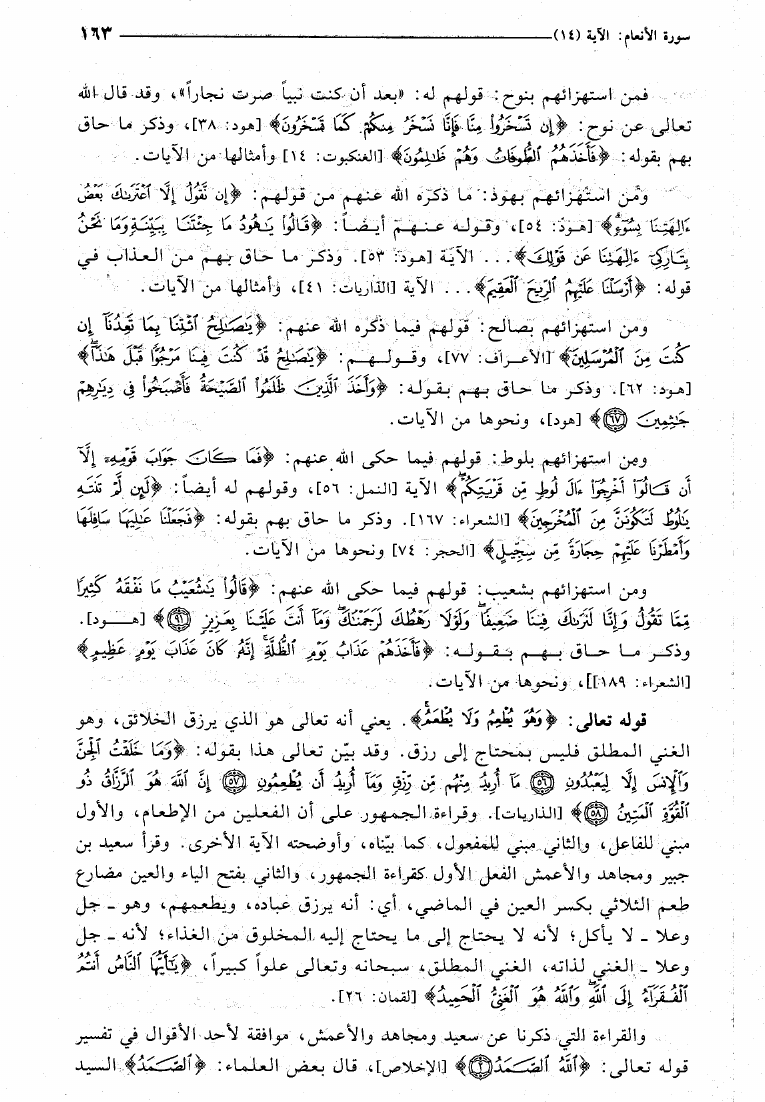 سورة الأنعام: الآية (١٤) ١٦٣
فمن استهزائهم بنوح: قولهم له: «بعد أن كنت نبياً صرت نجاراً»، وقد قال الله
تعالى عن نوح: ﴿إِن تَسْخَرُوا۟ مِنَّا فَإِنَّا نَسْخَرُ مِنكُمْ كَمَا تَسْخَرُونَ﴾ [هود: ٣٨]، وذكر ما حاق
بهم بقوله: ﴿فَأَخَذَهُمُ ٱلطُّوفَانُ وَهُمْ ظَـٰلِمُونَ﴾ [العنكبوت: ١٤] وأمثالها من الآيات.
ومن استهزائهم بهود: ما ذكره الله عنهم من قولهم: ﴿إِن نَّقُولُ إِلَّا ٱعْتَرَىٰكَ بَعْضُ
ءَالِهَتِنَا بِسُوٓءٍ﴾ [هود: ٥٤]، وقوله عنهم أيضاً: ﴿قَالُوا۟ يَـٰهُودُ مَا جِئْتَنَا بِبَيِّنَةٍ وَمَا نَحْنُ
بِتَارِكِىٓ ءَالِهَتِنَا عَن قَوْلِكَ﴾... الآية [هود: ٥٣]. وذكر ما حاق بهم من العذاب في
قوله: ﴿أَرْسَلْنَا عَلَيْهِمُ ٱلرِّيحَ ٱلْعَقِيمَ﴾... الآية [الذاريات: ٤١]، وأمثالها من الآيات.
ومن استهزائهم بصالح: قولهم فيما ذكره الله عنهم: ﴿يَـٰصَـٰلِحُ ٱئْتِنَا بِمَا تَعِدُنَآ إِن
كُنتَ مِنَ ٱلْمُرْسَلِينَ﴾ [الأعراف: ٧٧]، وقولهم: ﴿يَـٰصَـٰلِحُ قَدْ كُنتَ فِينَا مَرْجُوًّا قَبْلَ هَـٰذَآ﴾
[هود: ٦٢]. وذكر ما حاق بهم بقوله: ﴿وَأَخَذَ ٱلَّذِينَ ظَلَمُوا۟ ٱلصَّيْحَةُ فَأَصْبَحُوا۟ فِى دِيَـٰرِهِمْ
جَـٰثِمِينَ ٦٧﴾ [هود]، ونحوها من الآيات.
ومن استهزائهم بلوط: قولهم فيما حكى الله عنهم: ﴿فَمَا كَانَ جَوَابَ قَوْمِهِۦٓ إِلَّآ
أَن قَالُوٓا۟ أَخْرِجُوٓا۟ ءَالَ لُوطٍ مِّن قَرْيَتِكُمْ﴾ الآية [النمل: ٥٦]، وقولهم له أيضاً: ﴿لَئِن لَّمْ تَنتَهِ
يَـٰلُوطُ لَتَكُونَنَّ مِنَ ٱلْمُخْرَجِينَ﴾ [الشعراء: ١٦٧]. وذكر ما حاق بهم بقوله: ﴿فَجَعَلْنَا عَـٰلِيَهَا سَافِلَهَا
وَأَمْطَرْنَا عَلَيْهِمْ حِجَارَةً مِّن سِجِّيلٍ﴾ [الحجر: ٧٤] ونحوها من الآيات.
ومن استهزائهم بشعيب: قولهم فيما حكى الله عنهم: ﴿قَالُوا۟ يَـٰشُعَيْبُ مَا نَفْقَهُ كَثِيرًا
مِّمَّا تَقُولُ وَإِنَّا لَنَرَىٰكَ فِينَا ضَعِيفًا وَلَوْلَا رَهْطُكَ لَرَجَمْنَـٰكَ وَمَآ أَنتَ عَلَيْنَا بِعَزِيزٍ ٩١﴾ [هود].
وذكر ما حاق بهم بقوله: ﴿فَأَخَذَهُمْ عَذَابُ يَوْمِ ٱلظُّلَّةِ إِنَّهُۥ كَانَ عَذَابَ يَوْمٍ عَظِيمٍ﴾
[الشعراء: ١٨٩]]، ونحوها من الآيات.
قوله تعالى: ﴿وَهُوَ يُطْعِمُ وَلَا يُطْعَمُ﴾. يعني أنه تعالى هو الذي يرزق الخلائق، وهو
الغني المطلق فليس بمحتاج إلى رزق. وقد بيّن تعالى هذا بقوله: ﴿وَمَا خَلَقْتُ ٱلْجِنَّ
وَٱلْإِنسَ إِلَّا لِيَعْبُدُونِ ٥٦ مَآ أُرِيدُ مِنْهُم مِّن رِّزْقٍ وَمَآ أُرِيدُ أَن يُطْعِمُونِ ٥٧ إِنَّ ٱللَّهَ هُوَ ٱلرَّزَّاقُ ذُو
ٱلْقُوَّةِ ٱلْمَتِينُ ٥٨﴾ [الذاريات]. وقراءة الجمهور على أن الفعلين من الإطعام، والأول
مبني للفاعل، والثاني مبني للمفعول، كما بيّناه، وأوضحته الآية الأخرى. وقرأ سعيد بن
جبير ومجاهد والأعمش الفعل الأول كقراءة الجمهور، والثاني بفتح الياء والعين مضارع
طعم الثلاثي بكسر العين في الماضي، أي: أنه يرزق عباده، ويطعمهم، وهو ـ جل
وعلا ـ لا يأكل؛ لأنه لا يحتاج إلى ما يحتاج إليه المخلوق من الغذاء؛ لأنه ـ جل
وعلا ـ الغني لذاته، الغني المطلق، سبحانه وتعالى علواً كبيراً، ﴿يَـٰٓأَيُّهَا ٱلنَّاسُ أَنتُمُ
ٱلْفُقَرَآءُ إِلَى ٱللَّهِ وَٱللَّهُ هُوَ ٱلْغَنِىُّ ٱلْحَمِيدُ﴾ [لقمان: ٢٦].
والقراءة التي ذكرنا عن سعيد ومجاهد والأعمش، موافقة لأحد الأقوال في تفسير
قوله تعالى: ﴿ٱللَّهُ ٱلصَّمَدُ ٢﴾ [الإخلاص]، قال بعض العلماء: ﴿ٱلصَّمَدُ﴾ السيد